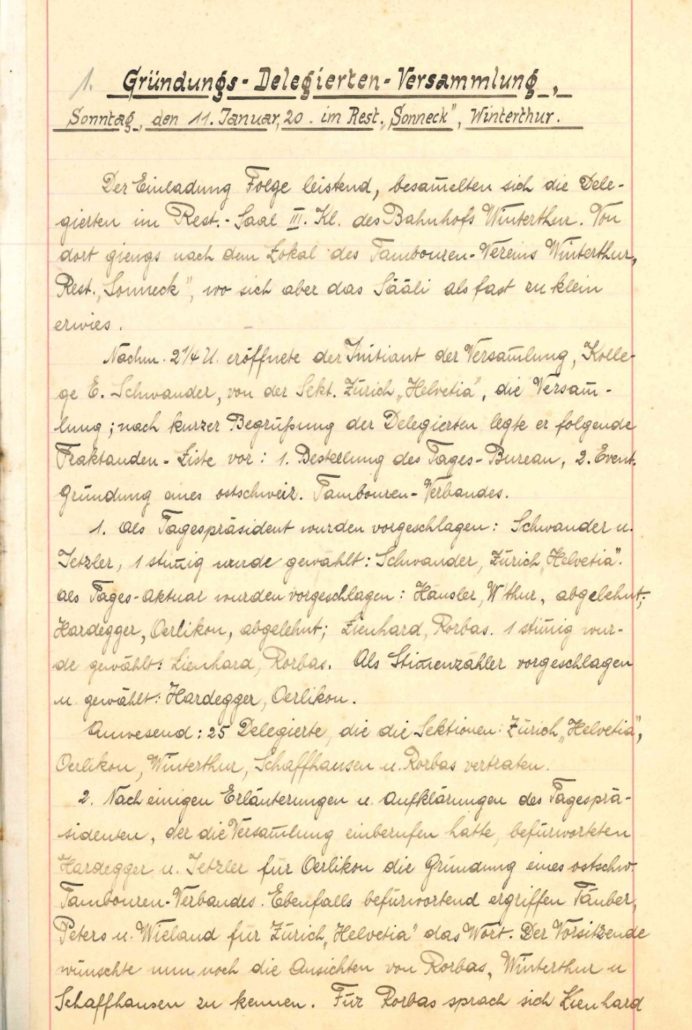 1. Gründungs-Delegierten-Versammlung,
Sonntag, den 11. Januar, 20. im Rest. „Sonneck", Winterthur.
Der Einladung Folge leistend, besam̅elten sich die Dele-
gierten im Rest.-Saal III. Kl. des Bahnhofs Winterthur. Von
dort giengs nach dem Lokal des Tambouren-Vereins Winterthur,
Rest. „Sonneck", wo sich aber das Sääli als fast zu klein
erwies.
Nachm. 2¼ U. eröffnete der Initiant der Versam̅lung, Kolle-
ge E. Schwander, von der Sekt. Zürich „Helvetia", die Versam̅-
lung; nach kurzer Begrüßung der Delegierten legte er folgende
Traktanden-Liste vor: 1. Bestellung des Tages-Bureau, 2. Event.
Gründung eines ostschweiz. Tambouren-Verbandes.
1. Als Tagespräsident wurden vorgeschlagen: Schwander u.
Jetzler, 1 stim̅ig wurde gewählt: Schwander, Zürich „Helvetia".
Als Tages-Aktuar wurden vorgeschlagen: Häusler, W'thur, abgelehnt;
Hardegger, Oerlikon, abgelehnt; Lienhard, Rorbas. 1 stim̅ig wur-
de gewählt: Lienhard, Rorbas. Als Stim̅enzähler vorgeschlagen
u. gewählt: Hardegger, Oerlikon.
Anwesend: 25 Delegierte, die die Sektionen: Zürich „Helvetia",
Oerlikon, Winterthur, Schaffhausen u. Rorbas vertraten.
2. Nach einigen Erläuterungen u. Aufklärungen des Tagesprä-
sidenten, der die Versam̅lung einberufen hatte, befürworkten
Hardegger u. Jetzler für Oerlikon die Gründung eines ostschw.
Tambouren-Verbandes. Ebenfalls befürwortend ergriffen Täuber,
Peters u. Wieland für Zürich „Helvetia" das Wort. Der Vorsitzende
wünschte nun noch die Ansichten von Rorbas, Winterthur u
Schaffhausen zu kennen. Für Rorbas sprach sich Lienhard